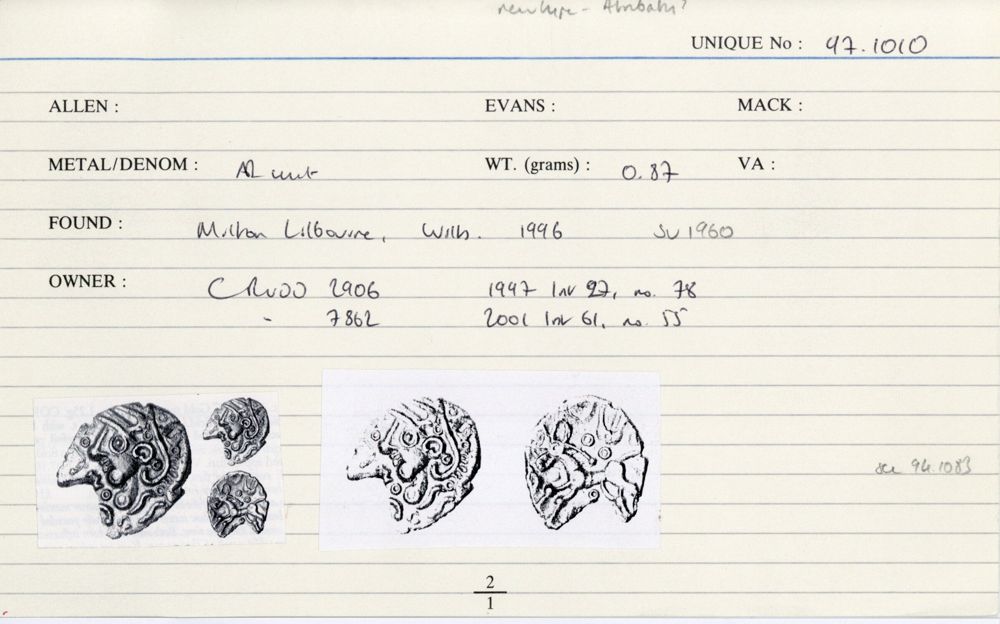 new type - Atrebatic?
UNIQUE No : 97.1010
ALLEN : EVANS : MACK :
METAL/DENOM : AR unit WT. (grams) : 0.87 VA :
FOUND : Milton Lilbourne, Wilts. 1996 SU 1960
OWNER : CR 2906 1997 Inv 27, no. 78
" 7862 2001 Inv 61, no. 55
see 94.1083
2
1